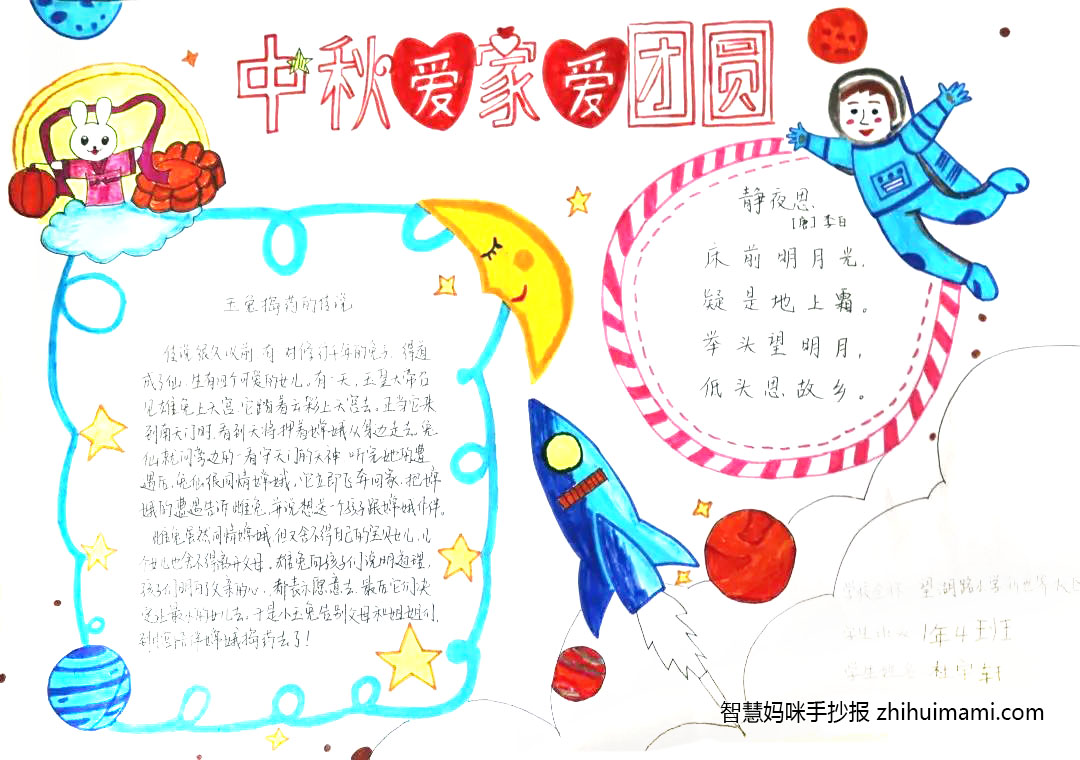 中秋爱家爱团圆
静夜思
[唐]李白
床前明月光,
疑是地上霜。
举头望明月,
低头思故乡。
玉兔捣药的传说
传说很久以前有一对修行千年的兔子,得道
成了仙,生有四个可爱的女儿。有一天,玉皇大帝召
见雄兔上天宫,它踏着云彩上天宫去。正当它来
到南天门时,看到天将押着嫦娥从身边走去。兔
仙就问旁边的一看守天门的大神 听完她的遭
遇后,兔仙很同情嫦娥,它立即飞车回家,把嫦
娥的遭遇告诉雌兔,并说想送一个孩子跟嫦娥作伴。
雌兔虽然同情嫦娥,但又舍不得自己的宝贝女儿,几
个女儿也舍不得离开父母。雄兔向孩子们说明道理,
孩子们明白父亲的心,都表示愿意去。最后它们决
定让最小的女儿去。于是小玉兔告别父母和姐姐们,
到月宫陪伴嫦娥捣药去了!
望湖路小学
1年4班
学生姓名 杜宇轩
智慧妈咪手抄报 zhihuimami.com